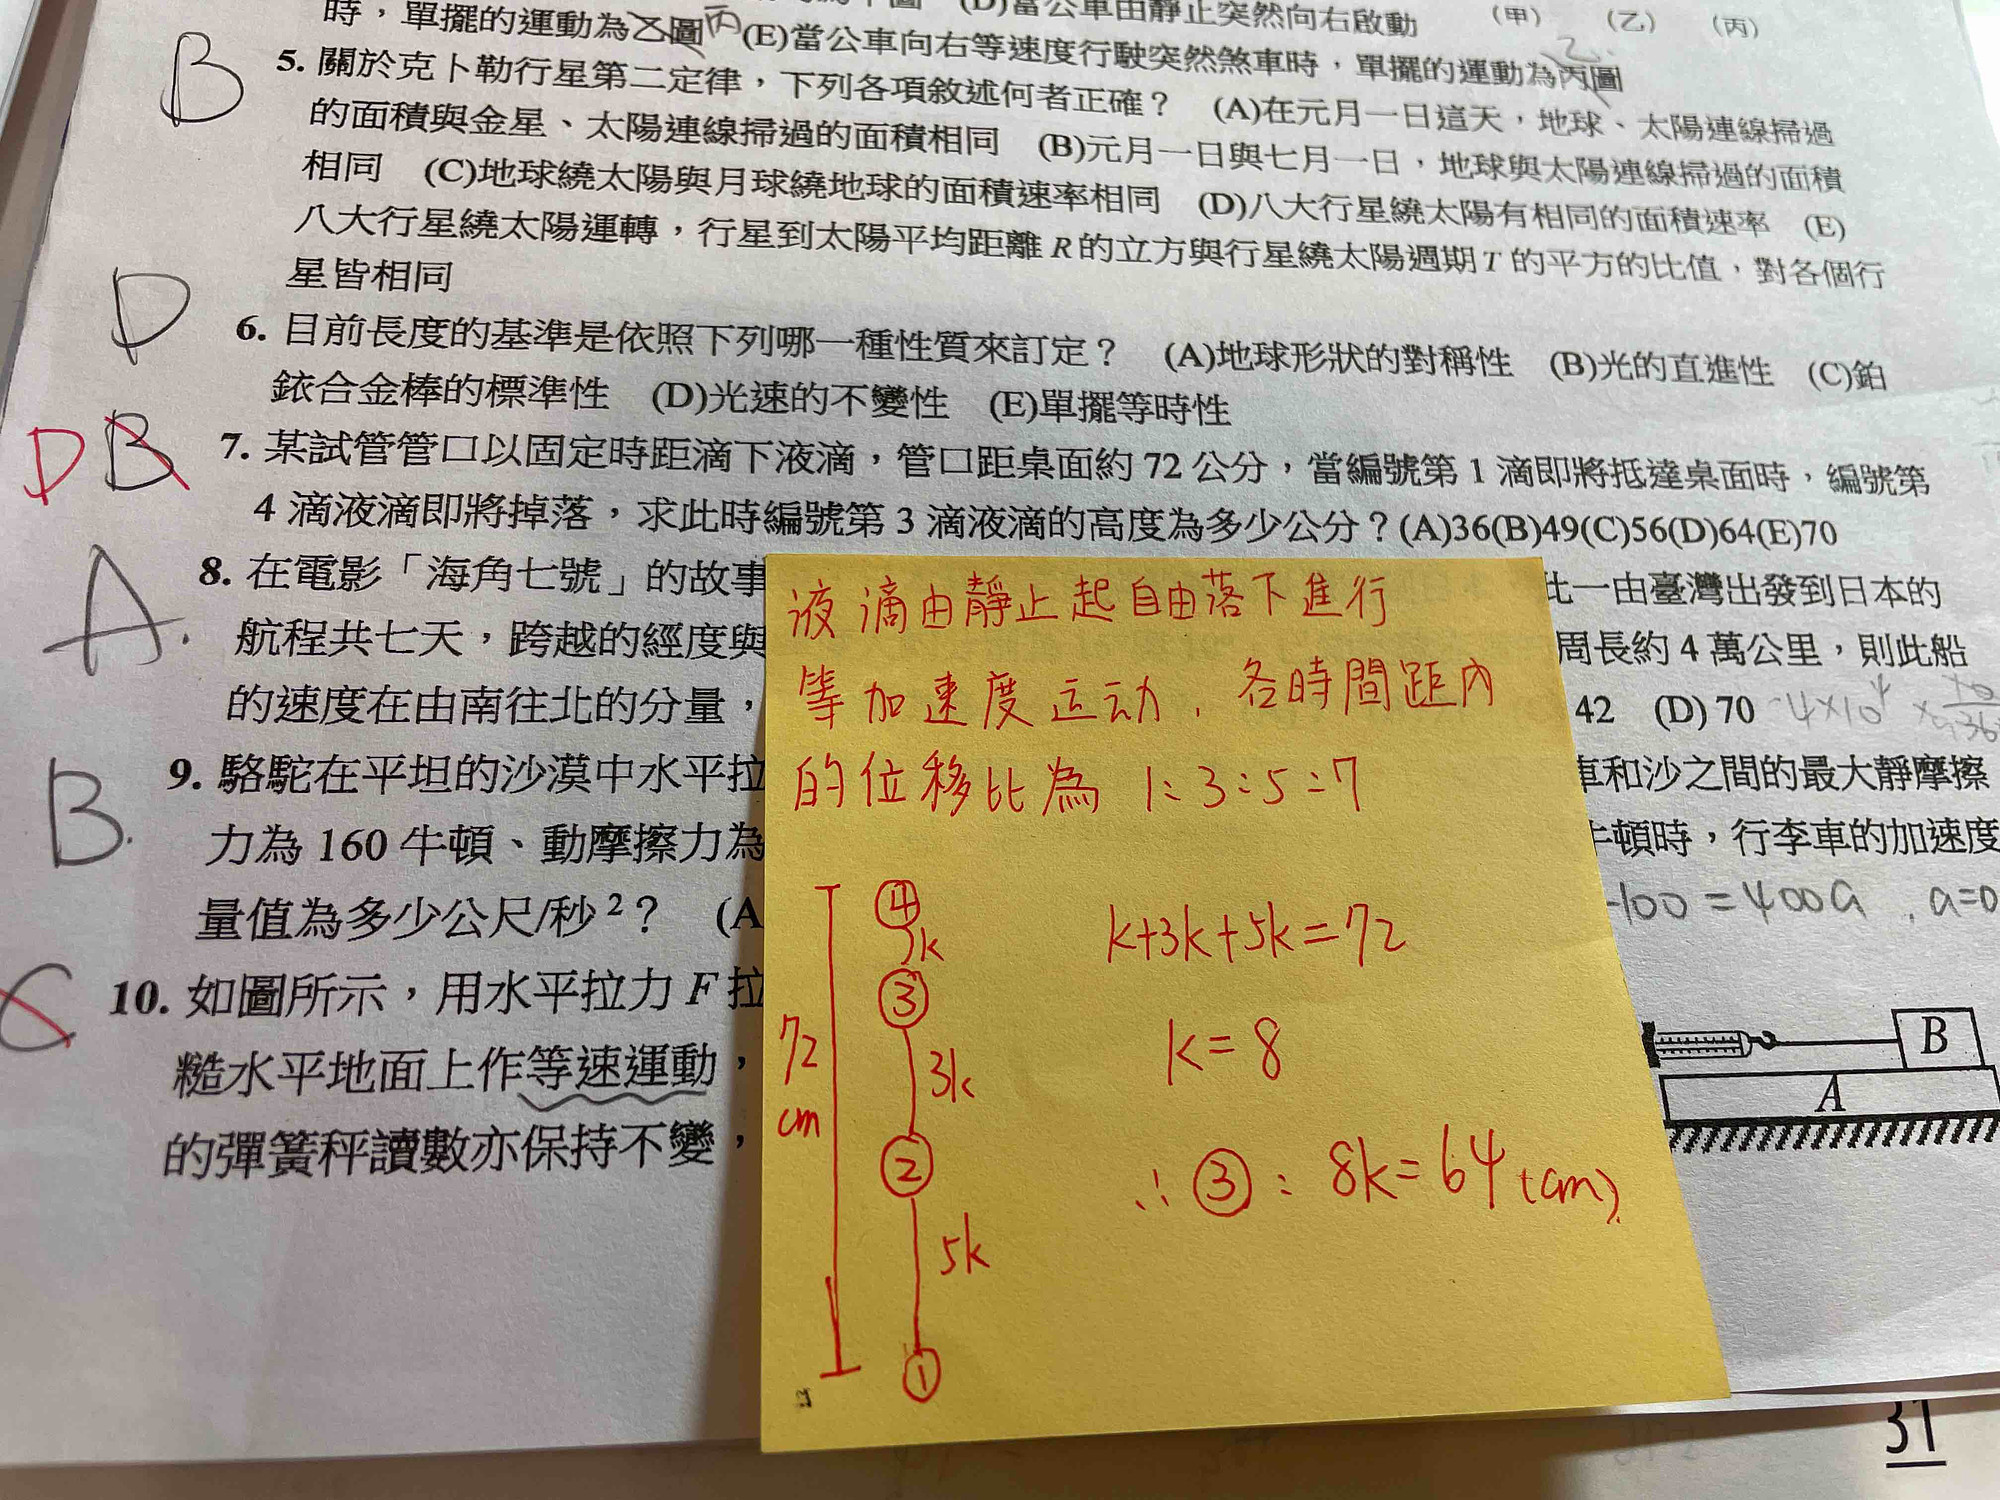 時，單擺的運動為乙圖丙 (E)當公車向右等速度行駛突然煞車時，單擺的運動為丙圖
(D)當公車由靜止突然向右啟動
(甲) (乙) (丙)
乙
B
5. 關於克卜勒行星第二定律，下列各項敘述何者正確？ (A)在元月一日這天，地球、太陽連線掃過
的面積與金星、太陽連線掃過的面積相同 (B)元月一日與七月一日，地球與太陽連線掃過的面積
相同 (C)地球繞太陽與月球繞地球的面積速率相同 (D)八大行星繞太陽有相同的面積速率 (E)
八大行星繞太陽運轉，行星到太陽平均距離 R 的立方與行星繞太陽週期 T 的平方的比值，對各個行
星皆相同
D
6. 目前長度的基準是依照下列哪一種性質來訂定？ (A)地球形狀的對稱性 (B)光的直進性 (C)鉑
銥合金棒的標準性 (D)光速的不變性 (E)單擺等時性
D B
7. 某試管管口以固定時距滴下液滴，管口距桌面約 72 公分，當編號第 1 滴即將抵達桌面時，編號第
4 滴液滴即將掉落，求此時編號第 3 滴液滴的高度為多少公分？(A)36(B)49(C)56(D)64(E)70
A.
8. 在電影「海角七號」的故事
比一由臺灣出發到日本的
航程共七天，跨越的經度與
周長約 4 萬公里，則此船
的速度在由南往北的分量，
42 (D) 70
B.
9. 駱駝在平坦的沙漠中水平拉
車和沙之間的最大靜摩擦
力為 160 牛頓、動摩擦力為
牛頓時，行李車的加速度
量值為多少公尺/秒²？ (A
-100 = 400a , a=0
C
10. 如圖所示，用水平拉力 F 拉
糙水平地面上作等速運動，
的彈簧秤讀數亦保持不變，
液滴由靜止起自由落下進行
等加速度运动，各時間距內
的位移比為 1:3:5:7
④
k
③
3k
②
5k
①
72
cm
k+3k+5k=72
k=8
∴③: 8k=64 (cm)
B
A
31